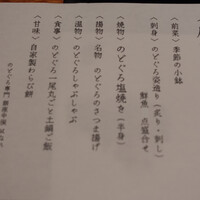 〈前菜〉季節の小鉢
〈刺身〉のどぐろ姿造り(炙り・刺し)
鮮魚 点盛合せ
〈焼物〉のどぐろ塩焼き(半身)
〈揚物〉名物 のどぐろのさつま揚げ
〈温物〉のどぐろしゃぶしゃぶ
〈食事〉のどぐろ一尾丸ごと土鍋ご飯
〈甘味〉自家製わらび餅
のどぐろ専門